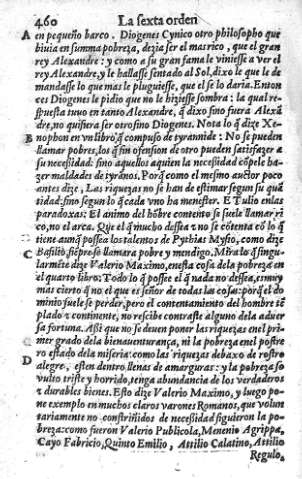 460 La sexta orden
A en pequeño barco. Diogenes Cynico otro philosopho que
biuia en summa pobreza, dezia ser el mas rico, que el gran
rey Alexandre: y como a su gran fama le viniesse a ver el
rey Alexandre, y le hallasse sentado al Sol, dixo le que le de
mandasse lo que mas le pluguiesse, que el se lo daria. Enton
ces Diogenes le pidio que no le hiziesse sombra: la qual res-
puesta tuuo en tanto Alexandre, q̃ dixo sino fuera Alexã
dre, no quisiera ser otro sino Diogenes. Nota lo q̃ dize Xe-
B nophon en vn libro q̃ compuso de tyrannide: No se pueden
llamar pobres, los q̃ sin ofension de otro pueden satisfazer a
su necessidad: sino aquellos aquien la necessidad cõpele ha-
zer maldades de tyranos. Porq̃ como el mesmo auctor poco
antes dize, Las riquezas no se han de estimar segun su quã
tidad: sino segun lo q̃ cada vno ha menester. E Tulio en las
paradoxas: El animo del hõbre contento se suele llamar ri
co, no el arca. Que el q̃ mucho dessea z no se cõtenta cõ lo q̃
tiene aunq̃ possea los talentos de Pythias Mysio, como dize
C Basilio, siẽpre se llamara pobre y mendigo. Mira lo q̃ singu-
larmẽte dize Valerio Maximo, en esta cosa de la pobreza en
el quarto libro: Todo lo q̃ possee el q̃ nada no dessea, es muy
mas cierto q̃ no el que es señor de todas las cosas: porq̃ el do
minio suele se perder, pero el contentamiento del hombre tẽ
plado z continente, no rescibe contraste alguno de la aduer
sa fortuna. Assi que no se deuen poner las riquezas en el pri-
mer grado de la bienauenturança, ni la pobreza en el postre
ro estado de la miseria: como las riquezas debaxo de rostro
D alegre, esten dentro llenas de amarguras: y la pobreza so
vulto triste y horrido, tenga abundancia de los verdaderos
z durables bienes. Esto dize Valerio Maximo, y luego po-
ne exemplo en muchos claros varones Romanos, que volun
tariamente no constriñidos de necessidad siguieron la po-
breza: como fueron Valerio Publicola, Menenio Agrippa,
Cayo Fabricio, Quinto Emilio, Attilio Calatino, Attilio
Regulo,